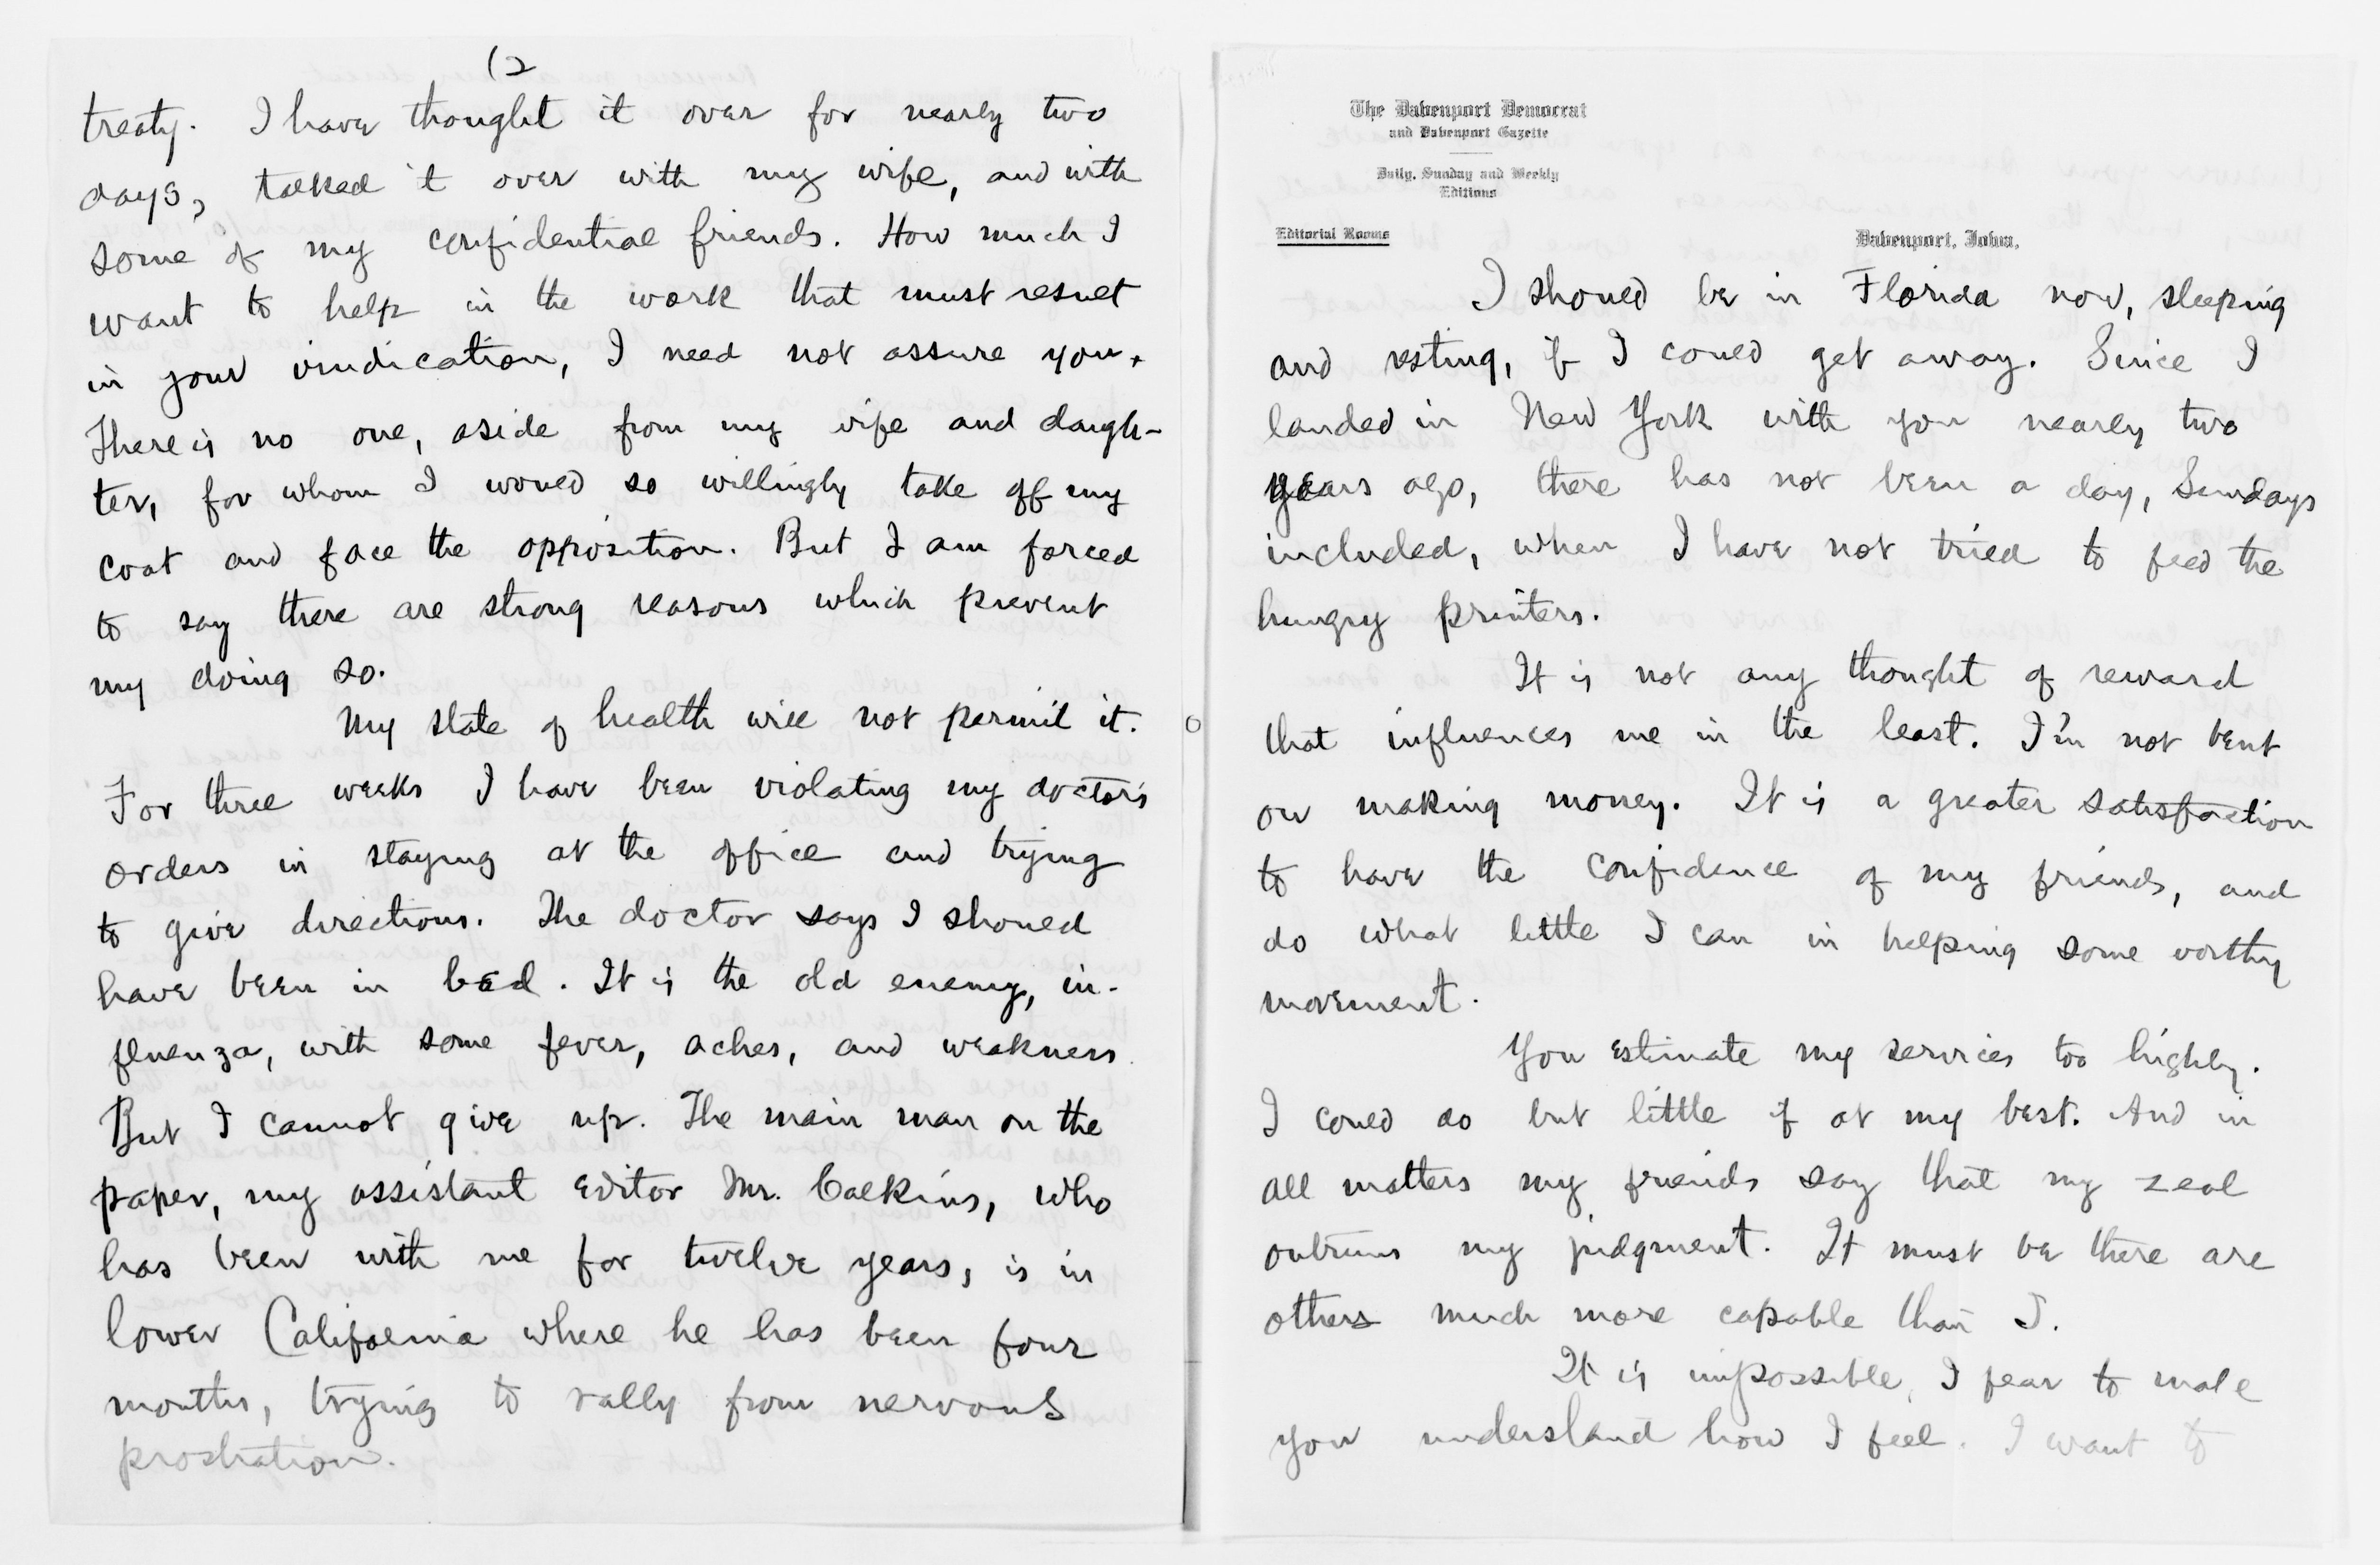 (2
treaty. I have thought it over for nearly two
days, talked it over with my wife, and with
some of my confidential friends. How much I
want to help in the work that must result
in your vindication, I need not assure you.
There is no one, aside from my wife and daugh-
ter, for whom I would so willingly take off my
coat and face the opposition. But I am forced
to say there are strong reasons which prevent
my doing so.
My state of health will not permit it.
For three weeks I have been violating my doctor's
orders in staying at the office and trying
to give directions. The doctor says I should
have been in bed. It is the old enemy, in-
fluenza, with some fever, aches, and weakness.
But I cannot give up. The main man on the
paper, my assistant editor Mr. Calkins, who
has been with me for twelve years, is in
lower California where he has been four
months, trying to rally from nervous
prostration.
The Davenport Democrat
and Davenport Gazette
Daily, Sunday and Weekly
Editions
Editorial Rooms
Davenport, Iowa,
I should be in Florida now, sleeping
and resting, if I could get away. Since I
landed in New York with you nearly two
years ago, there has not been a day, Sundays
included, when I have not tried to feed the
hungry printers.
It is not any thought of reward
that influences me in the least. I'm not bent
on making money. It is a greater satisfaction
to have the confidence of my friends, and
do what little I can in helping some worthy
movement.
You estimate my services too highly.
I could do but little if at my best. And in
all matters my friends say that my zeal
outruns my judgment. It must be there are
others much more capable than I.
It is impossible, I fear to make
you understand how I feel. I want to